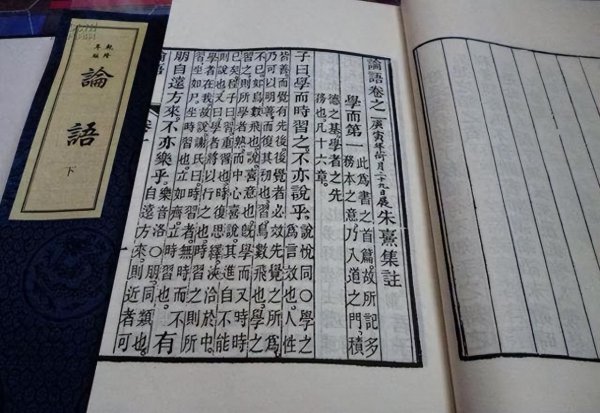 論語卷之一 庚寅年荷月二十九日展 朱熹集註
學而第一 此爲書之首篇故所記多
務本之意乃入道之門積
德之基學者之先
務也凡十六章。
子曰學而時習之不亦說乎。說悅同○學之
爲言效也人性
皆善而覺有先後後覺者必效先覺之所爲
乃可以明善而復其初也習鳥數飛也學之
不已如鳥數飛也說喜意也旣學而又時時
習之則所學者熟而中心喜說其進自不能
已矣程子曰習重習也時復思繹浹洽於中。
則說也又曰學者將以行之也時習之則所
學者在我故說謝氏曰時習者無時而不
習坐如尸坐時習也立如齊立時習也。有
朋自遠方來不亦樂乎。樂音洛○朋同類也。
自遠方來則近者可
論語
卷一
一
論語
下